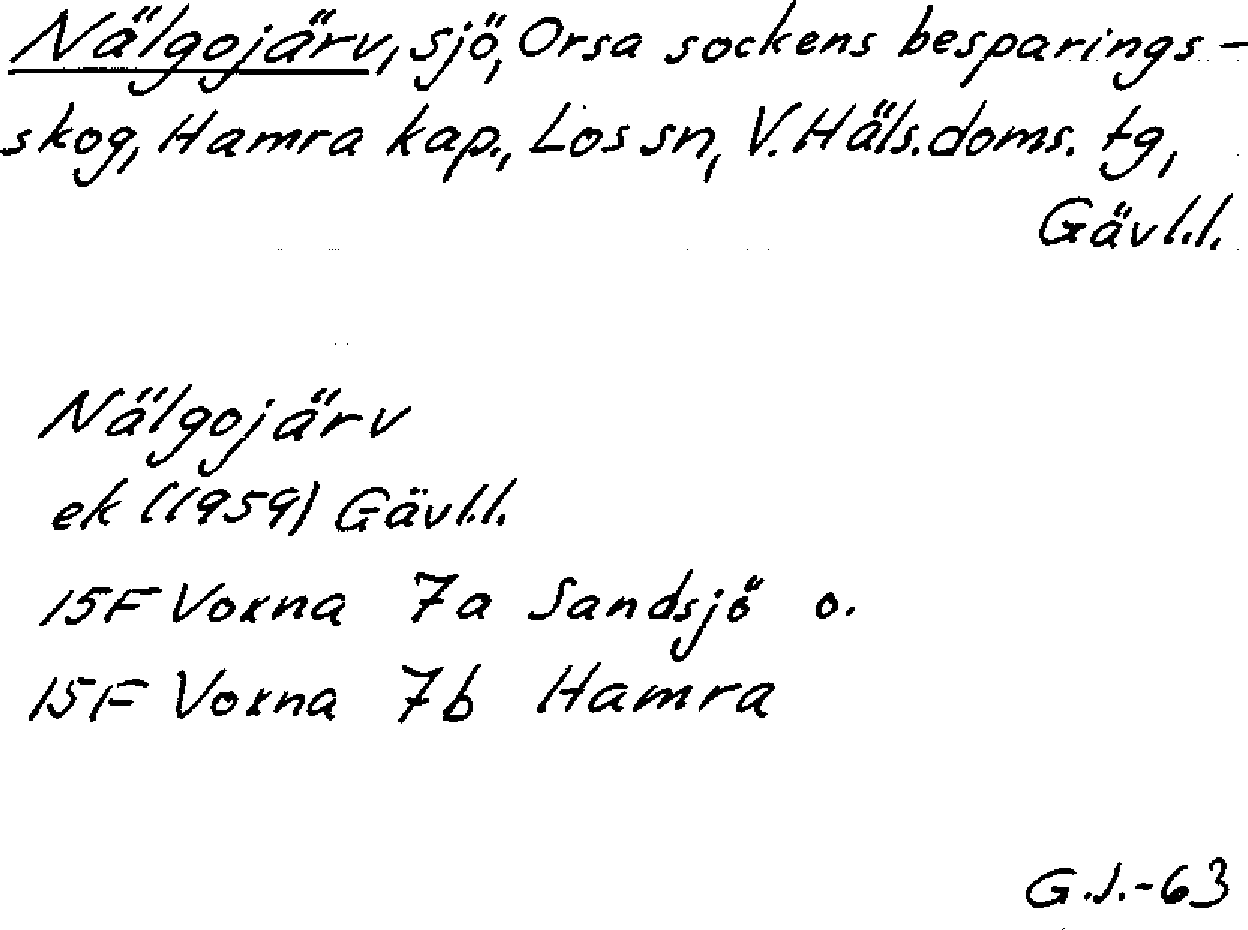 Nälgojärv, sjö, Orsa sockens besparings-
skog, Hamra kap., Los sn, V. Häls. doms. tg,
Gävl.l.
Nälgojärv
ek (1959) Gävl.l.
15F Voxna 7a Sandsjö o.
15F Voxna 7b Hamra
G.J.-63